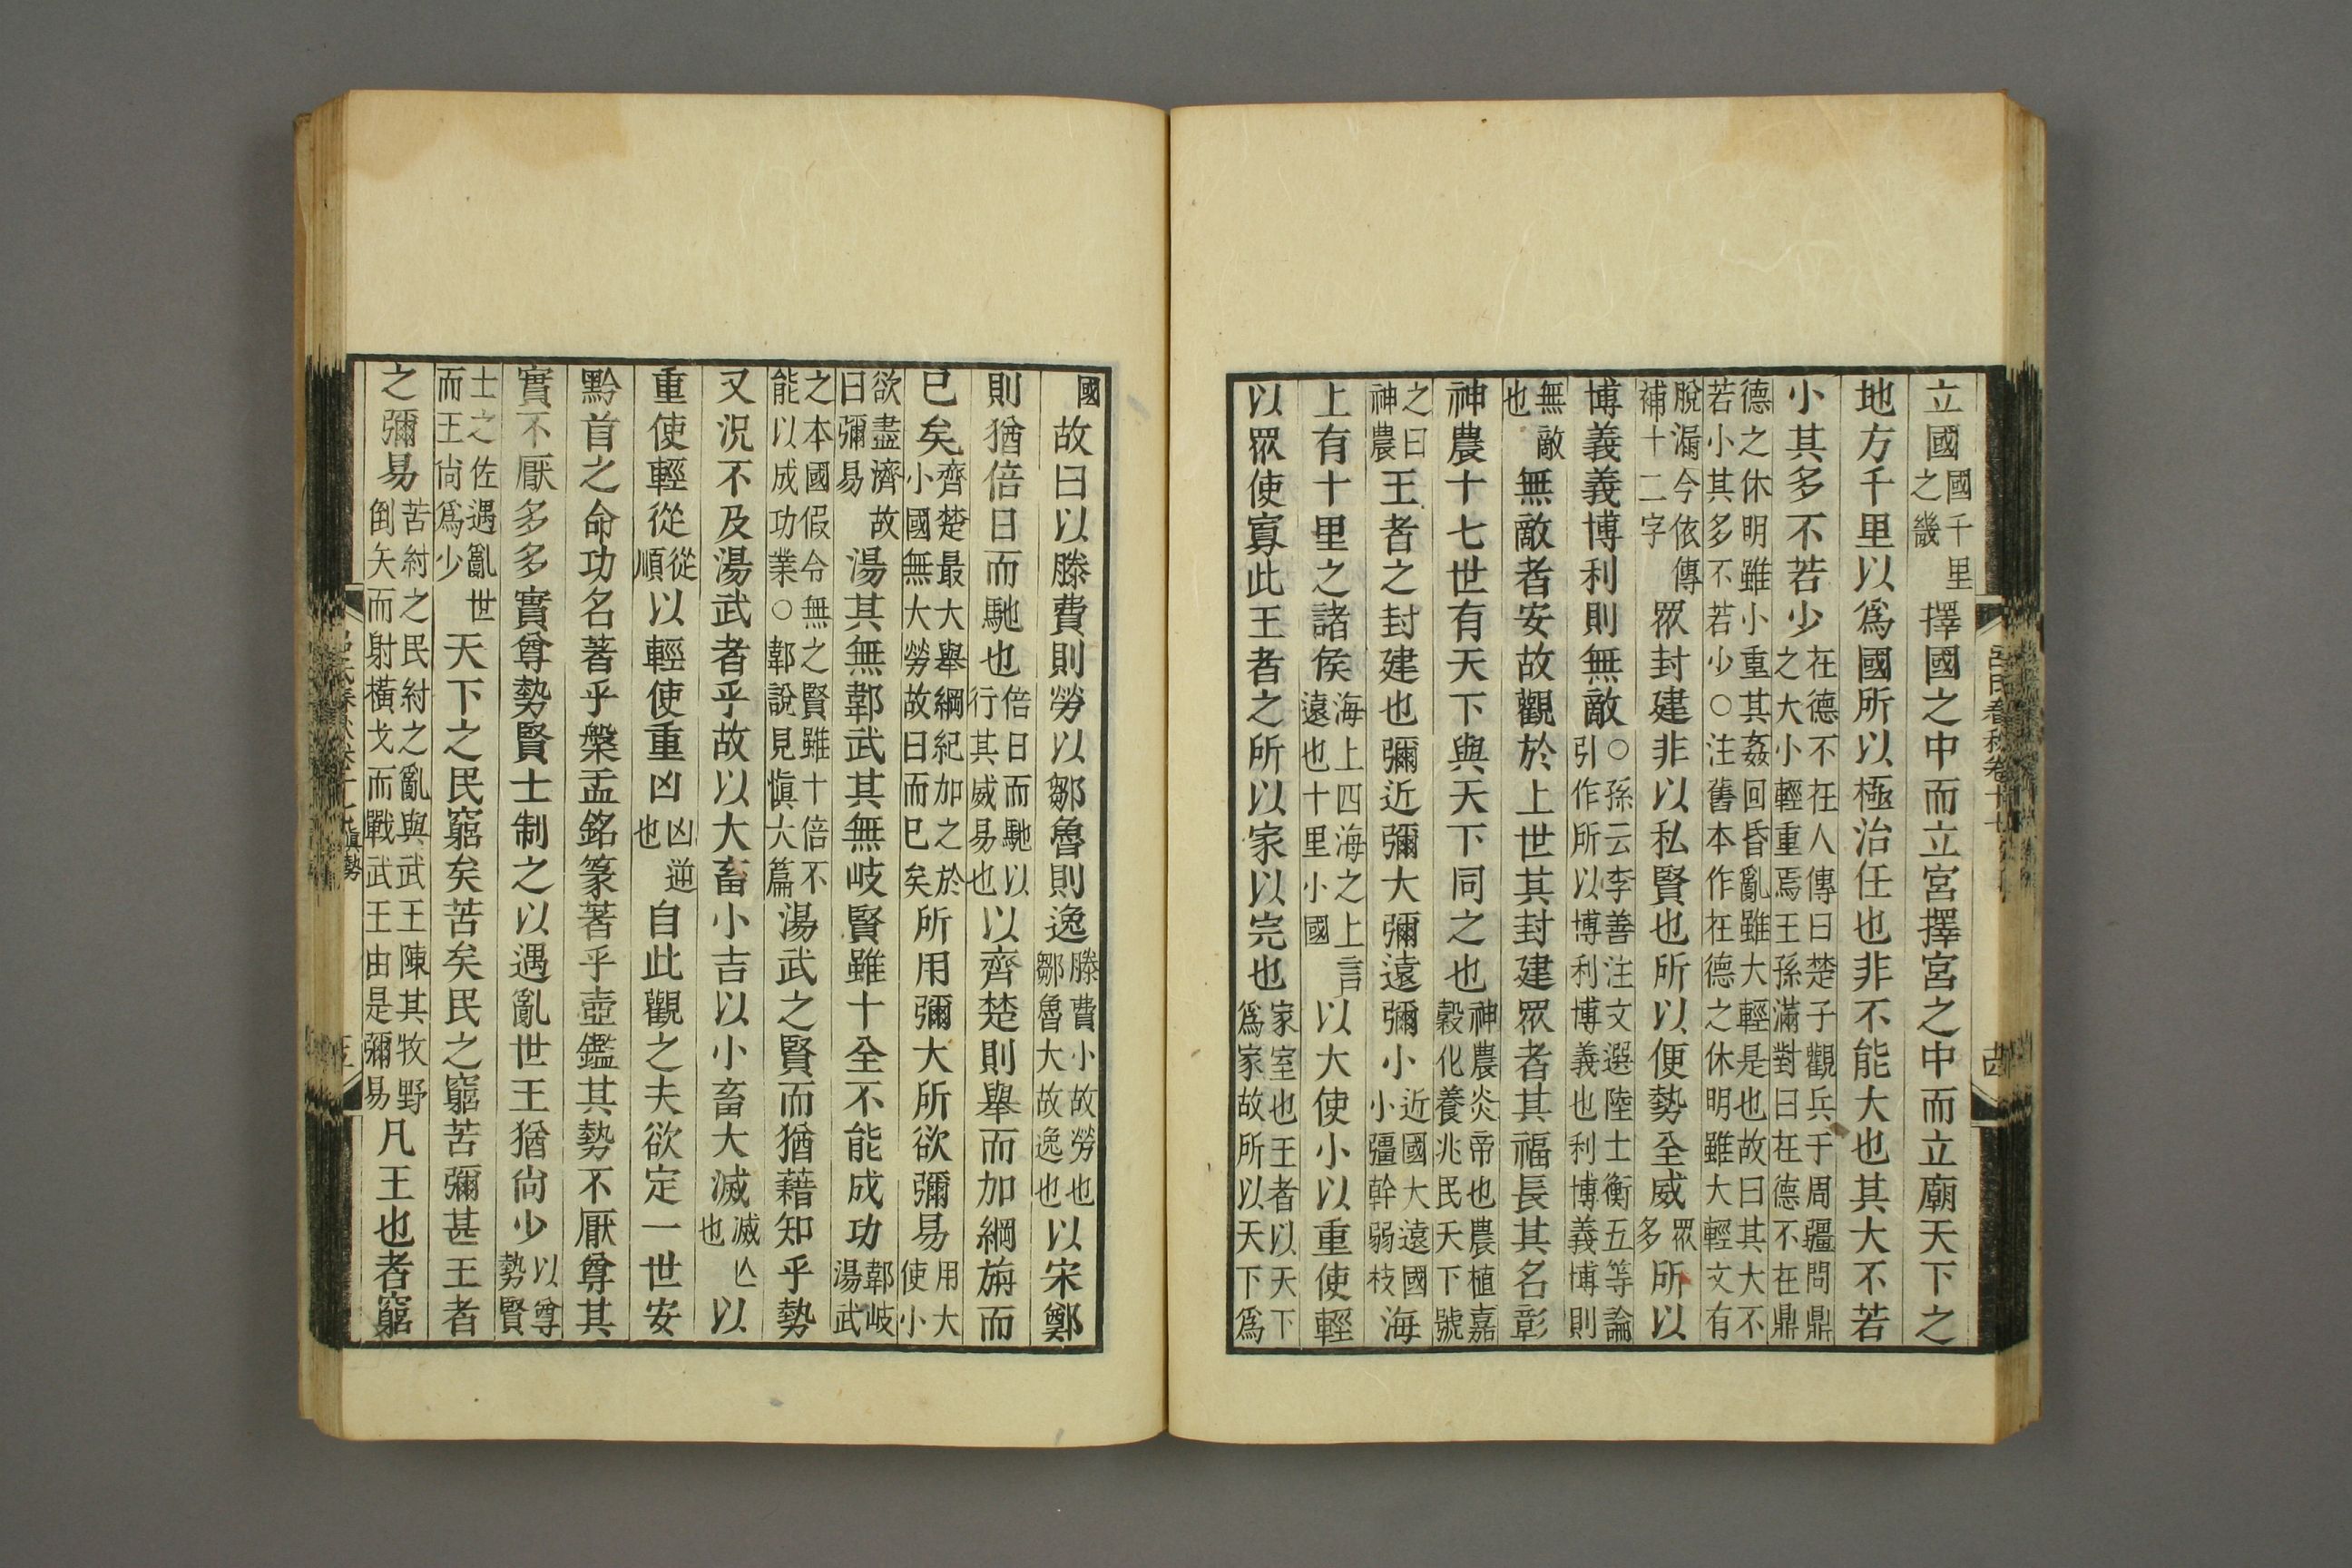 立國國千里之畿擇國之中而立宮擇宮之中而立廟天下之
地方千里以爲國所以極治任也非不能大也其大不若
小其多不若少在德不在人傳曰楚子觀兵于周疆問鼎之大小輕重焉王孫滿對曰在德不在鼎
德之休明雖小重其姦回昏亂雖大輕是也故曰其大不若小其多不若少○注舊本作在德之休明雖大輕文有
脫漏今依傳補十二字眾封建非以私賢也所以便勢全威眾多所以
博義義博利則無敵○孫云李善注文選陸士衡五等論引作所以博利博義也利博義博則
無敵也無敵者安故觀於上世其封建眾者其福長其名彰
神農十七世有天下與天下同之也神農炎帝也農植嘉穀化養兆民天下號
之曰神農王者之封建也彌近彌大彌遠彌小近國大遠國小疆幹弱枝海
上有十里之諸侯海上四海之上言遠也十里小國以大使小以重使輕
以眾使寡此王者之所以家以完也家室也王者以天下爲家故所以天下爲
呂氏春秋卷十七
國故曰以滕費則勞以鄒魯則逸滕費小故勞也鄒魯大故逸也以宋鄭
則猶倍日而馳也倍日而馳以行其威易也以齊楚則舉而加綱旃而
已矣齊楚最大舉綱紀加之於小國無大勞故曰而已矣所用彌大所欲彌易用大使小
欲盡濟故曰彌易湯其無鄣武其無岐賢雖十全不能成功鄣岐湯武
之本國假令無之賢雖十倍不能以成功業○鄣說見愼大篇湯武之賢而猶藉知乎勢
又況不及湯武者乎故以大畜小吉以小畜大滅滅亾也以
重使輕從從順以輕使重凶凶逆也自此觀之夫欲定一世安
黔首之命功名著乎槃盂銘篆著乎壺鑑其勢不厭尊其
實不厭多多實尊勢賢士制之以遇亂世王猶尙少以尊勢賢
士之佐遇亂世而王尙爲少天下之民窮矣苦矣民之窮苦彌甚王者
之彌易苦紂之民紂之亂與武王陳其牧野倒矢而射橫戈而戰武王由是彌易凡王也者窮
愼勢